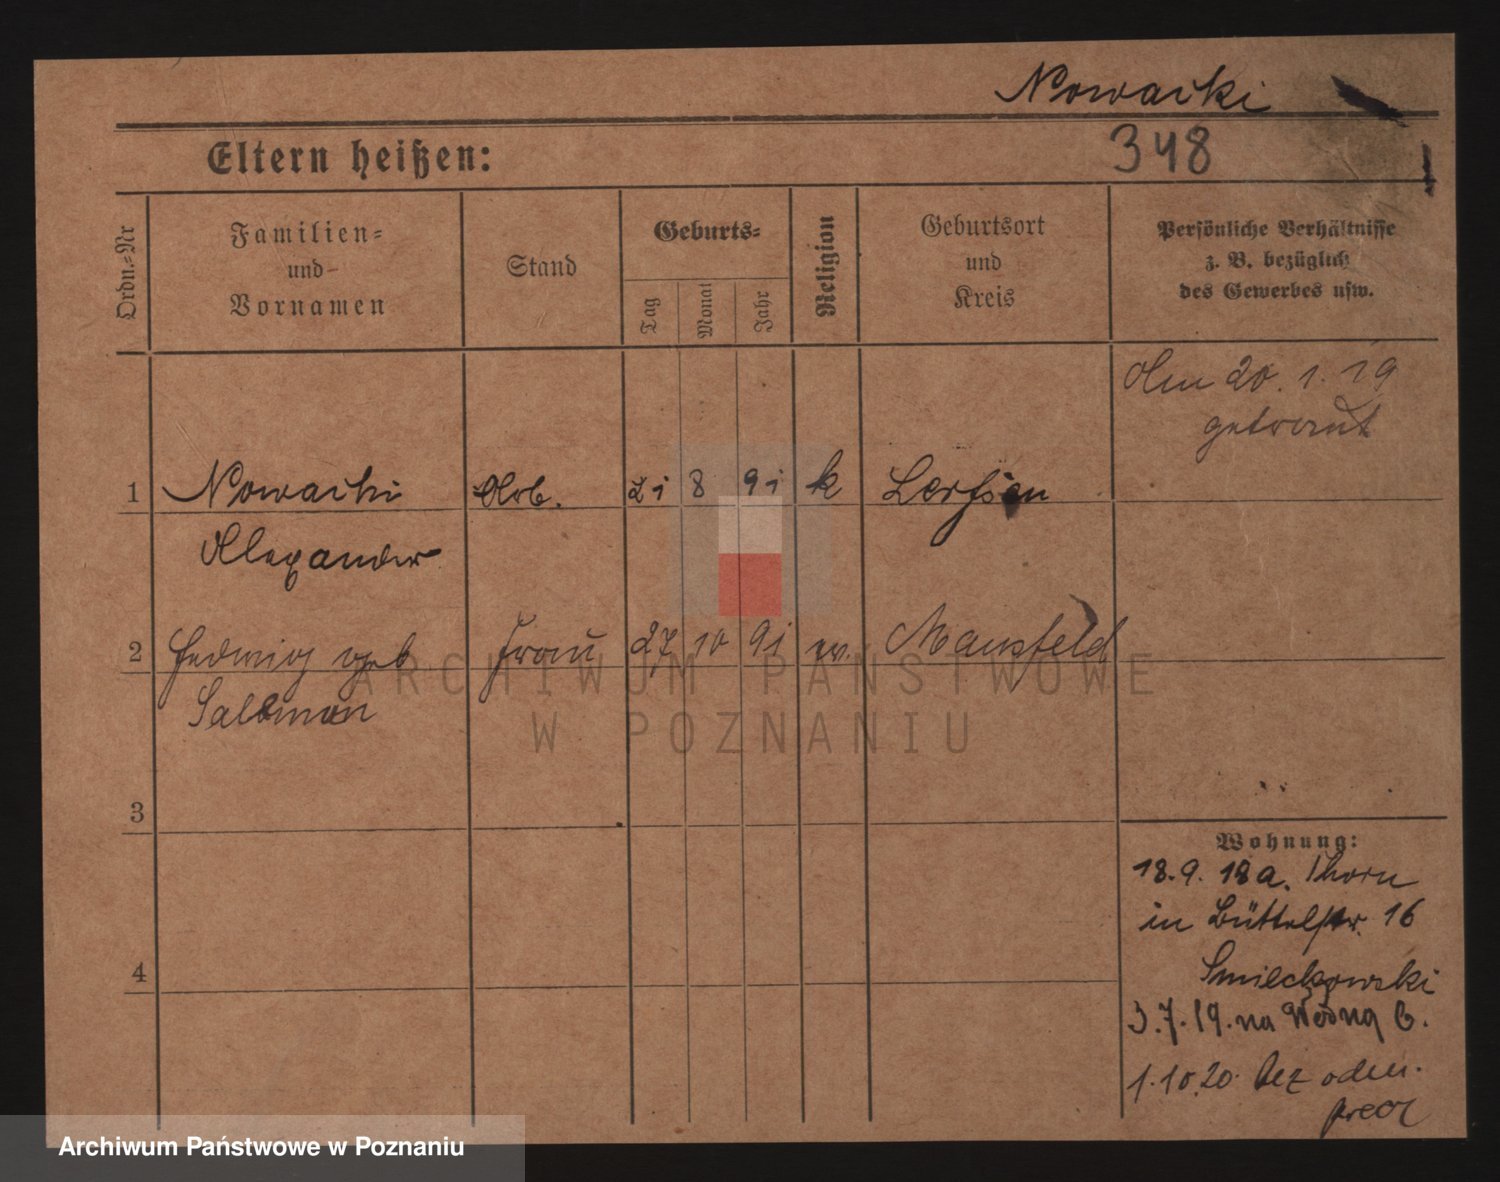 Nowacki
348
Eltern heißen:
Ordn.-Nr
Familien-
und
Vornamen
Stand
Geburts-
Tag
Monat
Jahr
Religion
Geburtsort
und
Kreis
Persönliche Verhältnisse
z. B. bezüglich
des Gewerbes usw.
Am 20. 1. 19
getraut
1 Nowacki Arb. 21 8 91 k
Alexander
2 Hedwig geb Frau 27 10 91 ev. Mansfeld
Salomon
3
Wohnung:
18.9. 18 a. Thorn
in Büttelstr. 16
4
3.7.19. na 6.
1.10.20. bez odm.
ARCHIWUM PAŃSTWOWE
W POZNANIU
Archiwum Państwowe w Poznaniu